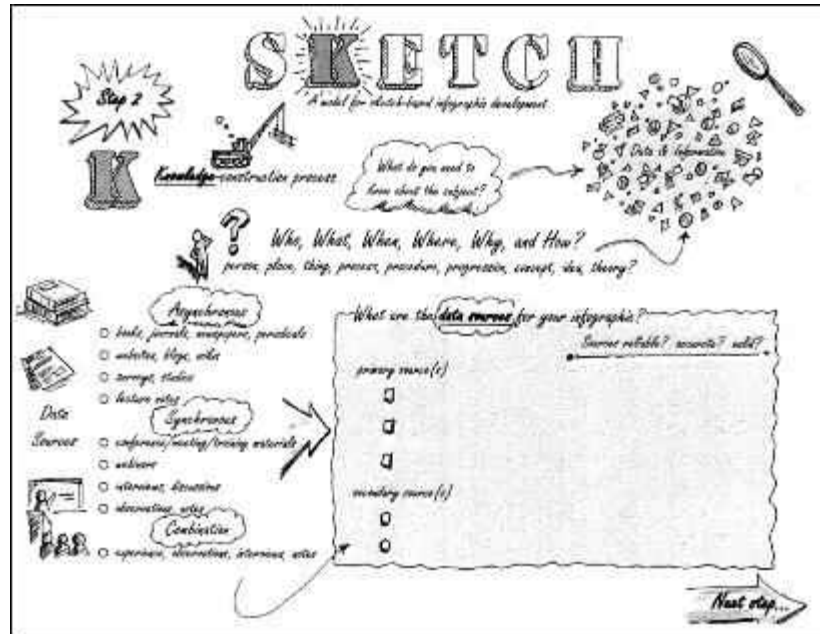 SKETCH
A model for sketch-based infographic development
Step 2
K
Knowledge construction process
What do you need to
know about the subject?
Data & Information
?
Who, What, When, Where, Why, and How?
person, place, thing, process, procedure, progression, concept, idea, theory?
Asynchronous
books, journals, newspapers, periodicals
websites, blogs, wikis
surveys, studies
lecture notes
Data
Sources
Synchronous
conference/meeting/training materials
webinars
interviews, discussions
observations, notes
Combination
experience, observations, interviews, notes
What are the data sources for your infographic?
Sources reliable? accurate? valid?
primary source(s)
secondary source(s)
Next step...